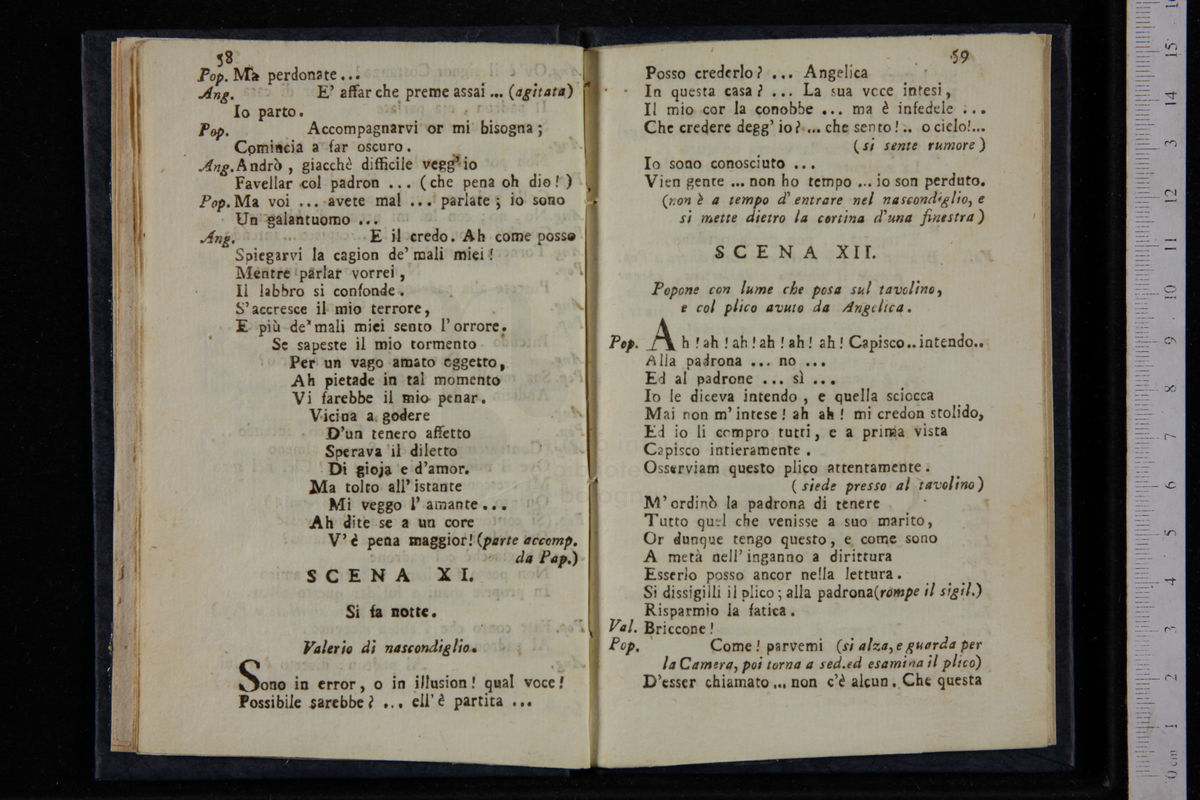 58
Pop. Ma perdonate ...
Ang. E' affar che preme assai ... (agitata)
Io parto.
Pop. Accompagnarvi or mi bisogna ;
Comincia a far oscuro.
Ang. Andrò , giacchè difficile vegg' io
Favellar col padron ... ( che pena oh dio ! )
Pop. Ma voi ... avete mal ... parlate ; io sono
Un galantuomo ...
Ang. E il credo. Ah come posso
Spiegarvi la cagion de' mali miei !
Mentre parlar vorrei ,
Il labbro si confonde .
S' accresce il mio terrore,
E più de' mali miei sento l' orrore.
Se sapeste il mio tormento
Per un vago amato oggetto,
Ah pietade in tal momento
Vi farebbe il mio penar.
Vicina a godere
D'un tenero affetto
Sperava il diletto
Di gioja e d'amor.
Ma tolto all' istante
Mi veggo l' amante ...
Ah dite se a un core
V' è pena maggior! (parte accomp.
da Pap.)
SCENA XI.
Si fa notte.
Valerio di nascondiglio.
Sono in error, o in illusion ! qual voce !
Possibile sarebbe ? ... ell' è partita ...
59
Posso crederlo ? ... Angelica
In questa casa ? ... La sua voce intesi ,
Il mio cor la conobbe ... ma è infedele ...
Che credere degg' io ? ... che sento ! .. o cielo!...
( si sente rumore )
Io sono conosciuto ...
Vien gente ... non ho tempo ... io son perduto.
(non è a tempo d' entrare nel nascondiglio, e
si mette dietro la cortina d'una finestra )
SCENA XII.
Popone con lume che posa sul tavolino,
e col plico avuto da Angelica .
Pop. Ah ! ah ! ah ! ah ! ah ! ah ! Capisco.. intendo..
Alla padrona ... no ...
Ed al padrone ... sì ...
Io le diceva intendo , e quella sciocca
Mai non m' intese ! ah ah ! mi credon stolido,
Ed io li compro tutti , e a prima vista
Capisco intieramente .
Osserviam questo plico attentamente .
( siede presso al tavolino )
M' ordinò la padrona di tenere
Tutto quel che venisse a suo marito,
Or dunque tengo questo , e come sono
A metà nell' inganno a dirittura
Esserlo posso ancor nella lettura .
Si dissigilli il plico ; alla padrona (rompe il sigil.)
Risparmio la fatica .
Val. Briccone !
Pop. Come ! parvemi (si alza, e guarda per
la Camera, poi torna a sed.ed esamina il plico)
D'esser chiamato ... non c'è alcun . Che questa